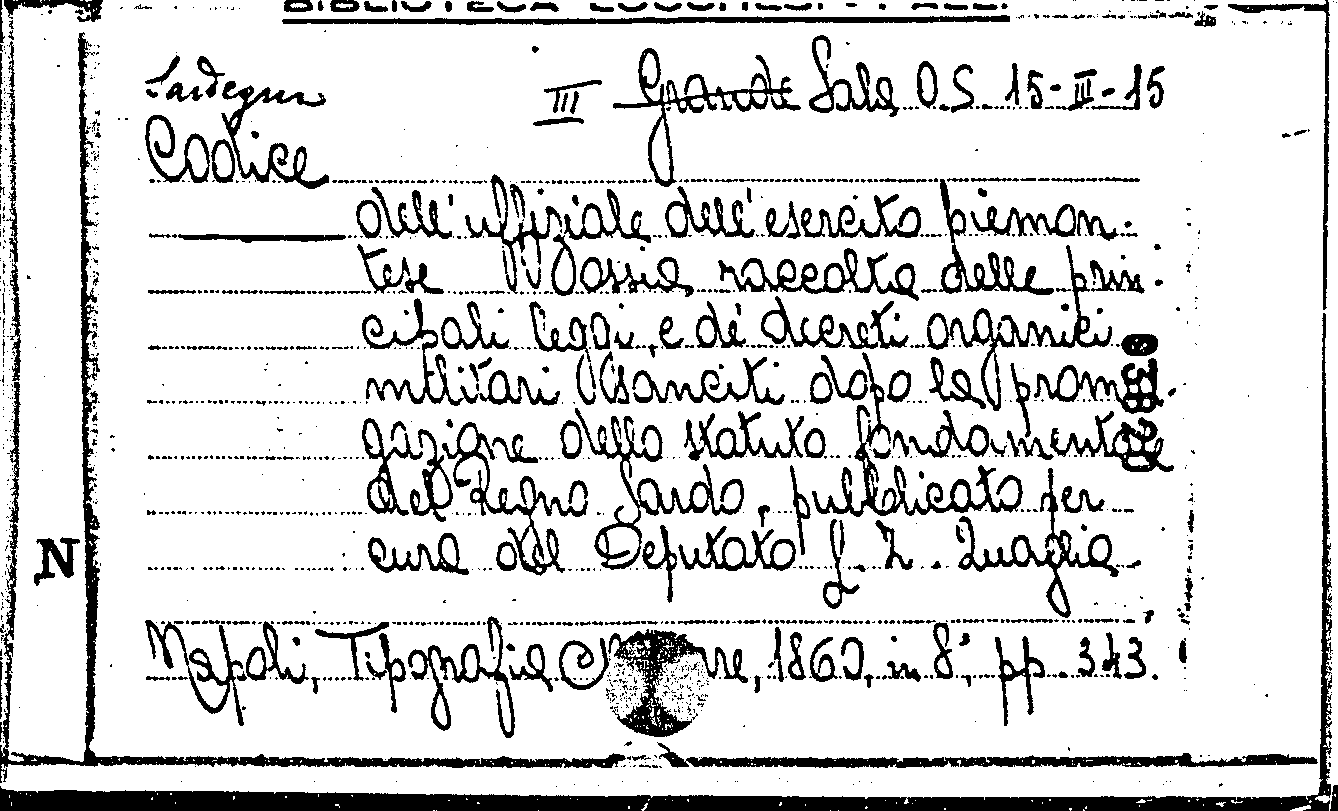 BIBLIOTECA LUCCHESI-PALLI
Sardegna III Grande Sala O.S. 15-III-15
Codice
dell'uffiziale dell'esercito piemon-
tese ossia raccolta delle prin-
cipali leggi, e de' decreti organici
militari sanciti dopo la promul-
gazione dello statuto fondamentale
del Regno Sardo, pubblicato per
cura del Deputato Z. Quaglia
N
Napoli, Tipografia 1860, in 8°, pp. 343.